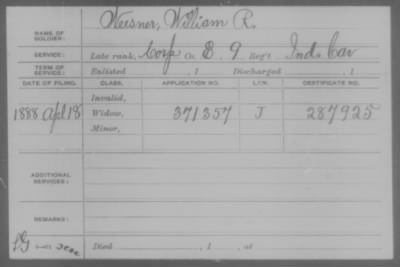 Weesner, William R.
NAME OF SOLDIER:
SERVICE: Late rank, Corp Co. E. 9 Reg't Ind. Cav
TERM OF SERVICE: Enlisted , 1 Discharged , 1
DATE OF FILING. CLASS. APPLICATION NO. LAW. CERTIFICATE NO.
Invalid,
1888 Apl 18 Widow, 371357 J 287925
Minor,
ADDITIONAL SERVICES:
REMARKS:
Died , 1 , at